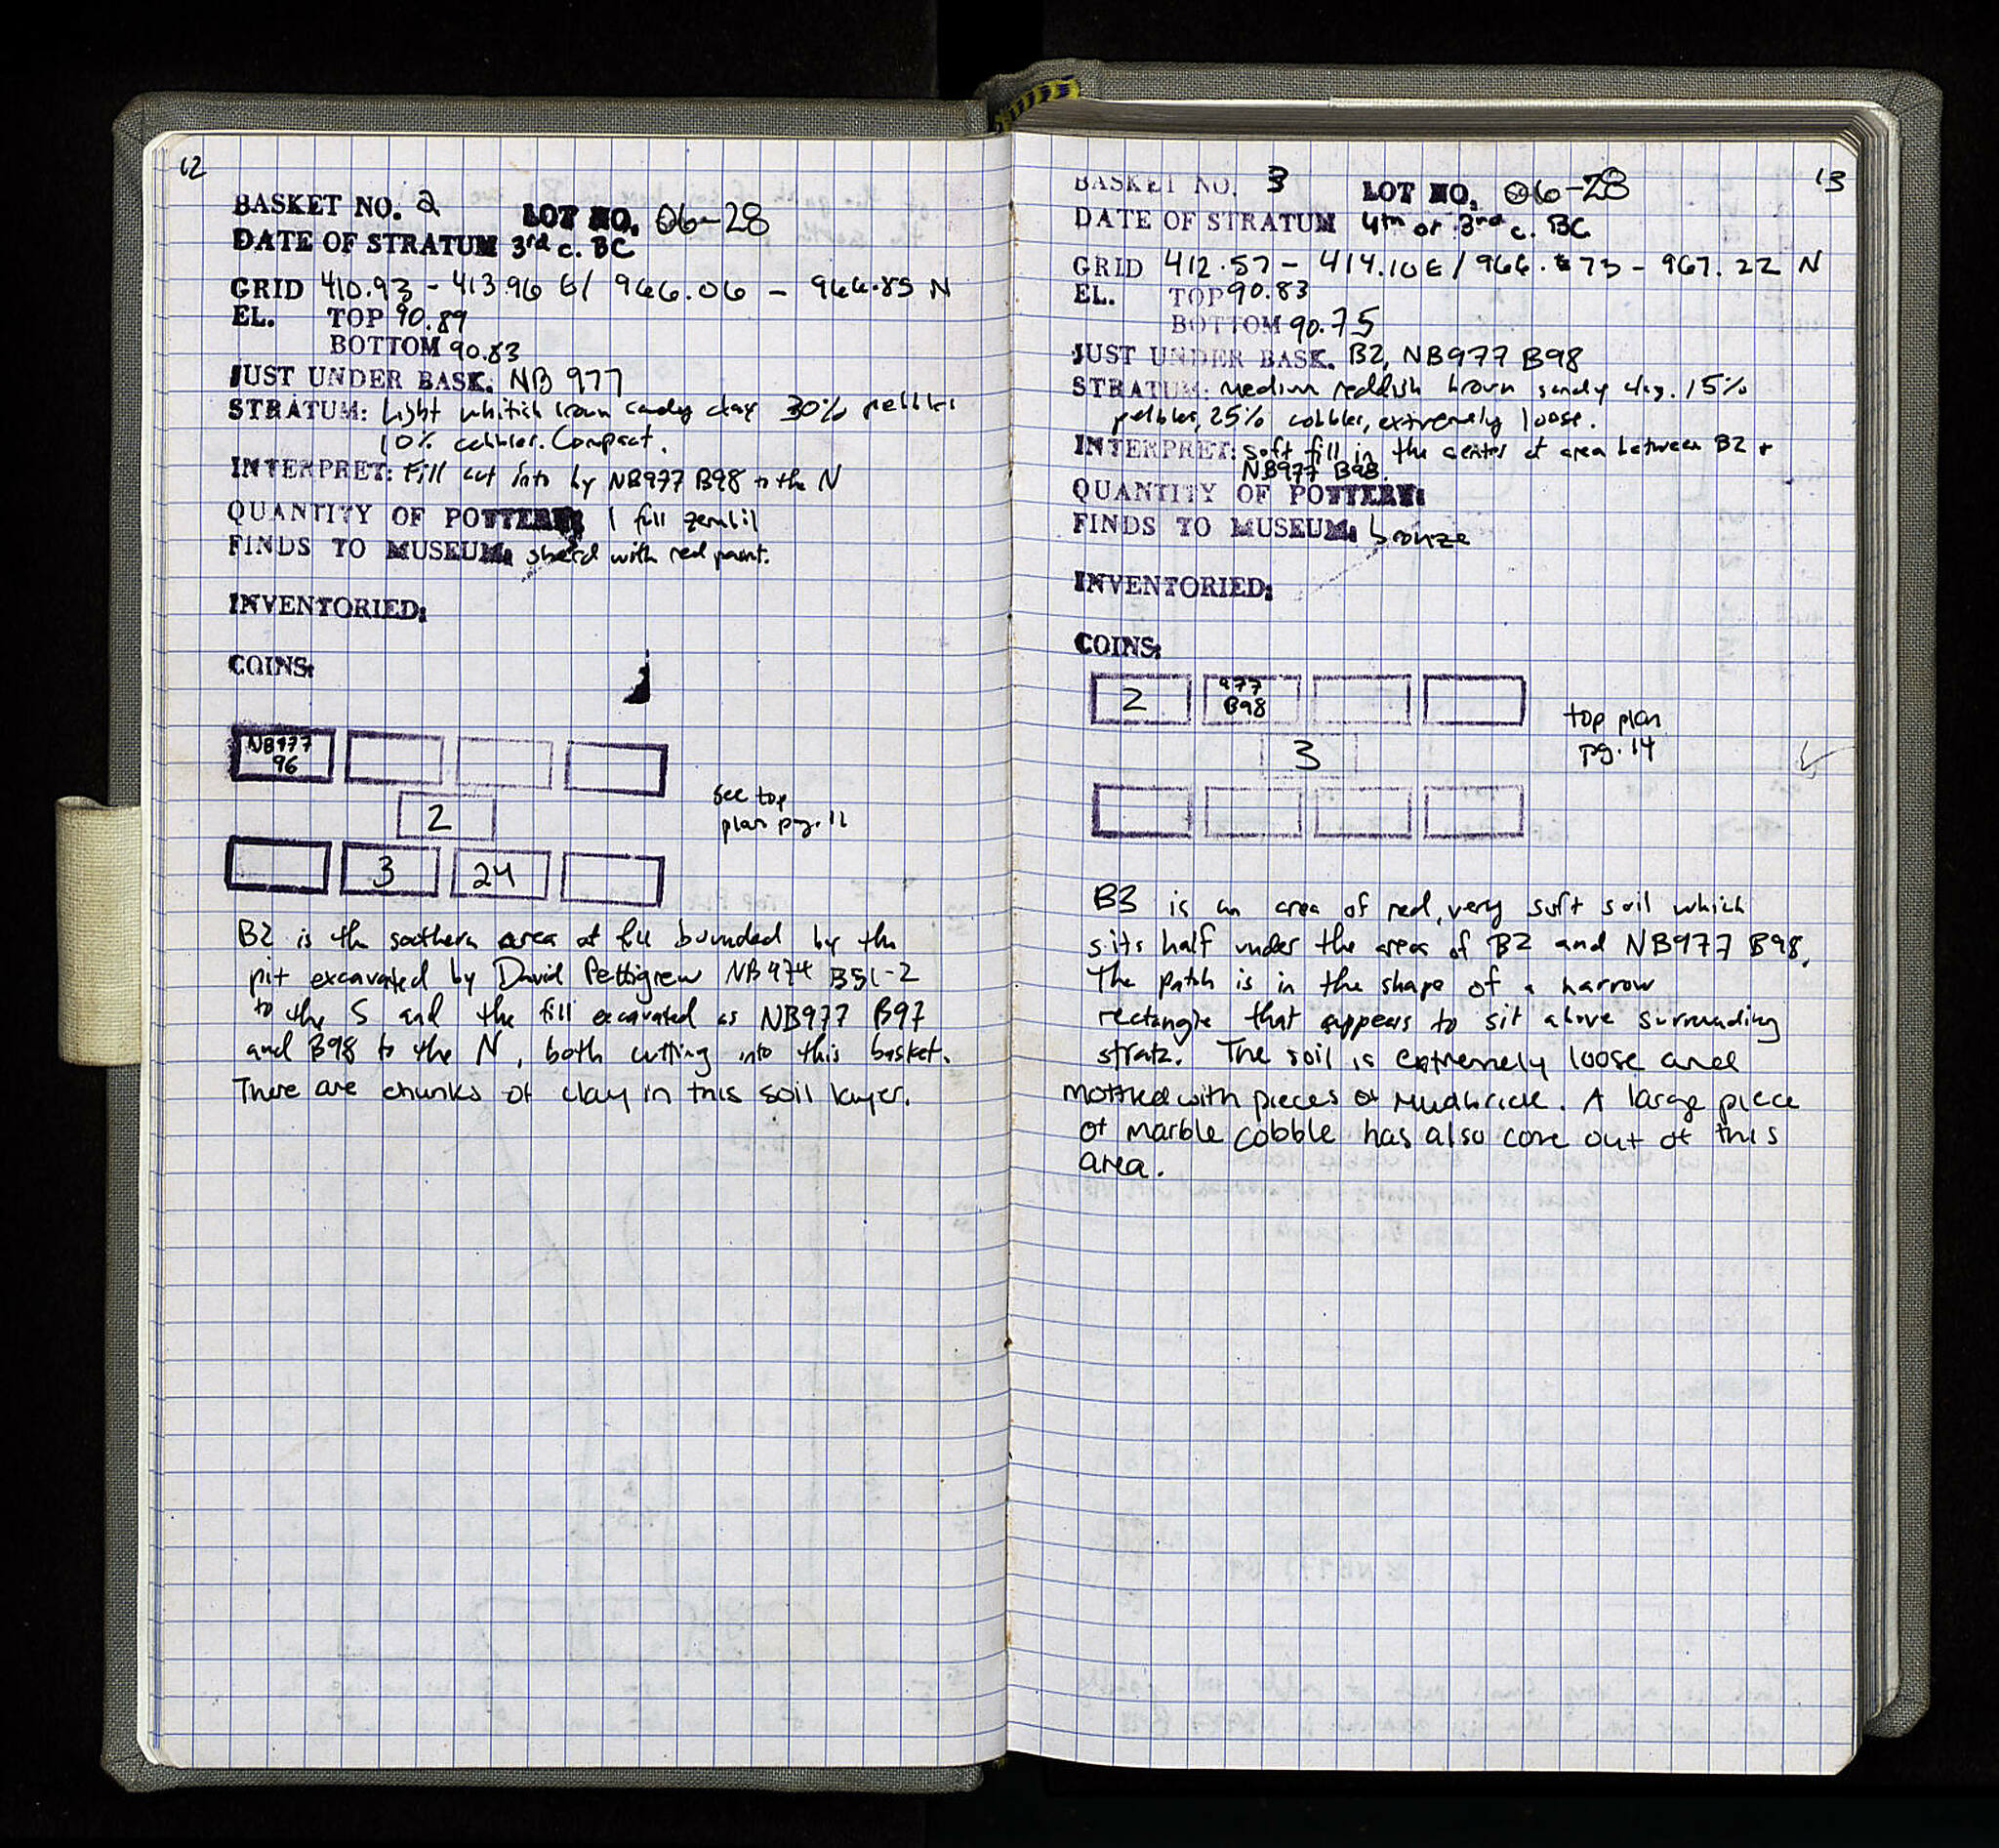 12
BASKET NO. 2 LOT NO. 06-28
DATE OF STRATUM 3rd c. BC
GRID 410.93 - 413.96 E/ 966.06 - 966.85 N
EL. TOP 90.89
BOTTOM 90.83
JUST UNDER BASK. NB 977
STRATUM: Light whitish brown sandy clay 30% pebbles
10% cobbles. Compact.
INTERPRET: Fill cut into by NB977 B98 to the N
QUANTITY OF POTTERY: 1 full zembil
FINDS TO MUSEUM: sherd with red paint.
INVENTORIED:
COINS:
NB977
96
2
see top
plan pg. 11
3 24
B2 is the southern area of fill bounded by the
pit excavated by David Pettigrew NB974 B51-2
to the S and the fill excavated as NB977 B97
and B98 to the N, both cutting into this basket.
There are chunks of clay in this soil layer.
13
BASKET NO. 3 LOT NO. 06-28
DATE OF STRATUM 4th or 3rd c. BC
GRID 412.57 - 414.10 E/ 966.73 - 967.22 N
EL. TOP 90.83
BOTTOM 90.75
JUST UNDER BASK. B2, NB977 B98
STRATUM: Medium reddish brown sandy clay. 15%
pebbles, 25% cobbles, extremely loose.
INTERPRET: soft fill in the center of area between B2 +
NB977 B98.
QUANTITY OF POTTERY:
FINDS TO MUSEUM: bronze
INVENTORIED:
COINS:
2 977
B98
top plan
pg. 14
3
B3 is an area of red, very soft soil which
sits half under the areas of B2 and NB977 B98.
The patch is in the shape of a narrow
rectangle that appears to sit above surrounding
strata. The soil is extremely loose and
mottled with pieces of mudbrick. A large piece
of marble cobble has also come out of this
area.